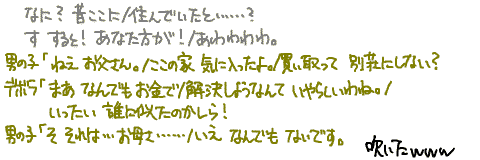 なに？ 昔ここに/住んでいたと……？
す すると！ あなた方が！/あわわわわ。
男の子「ねえ お父さん。/この家 気に入ったよ。/買い取って 別荘にしない？
デボラ「まあ なんでもお金で/解決しようなんて いやらしいわね。/
いったい 誰に似たのかしら！
男の子「そ それは…お母さ……/いえ なんでも ないです。
吹いたwww